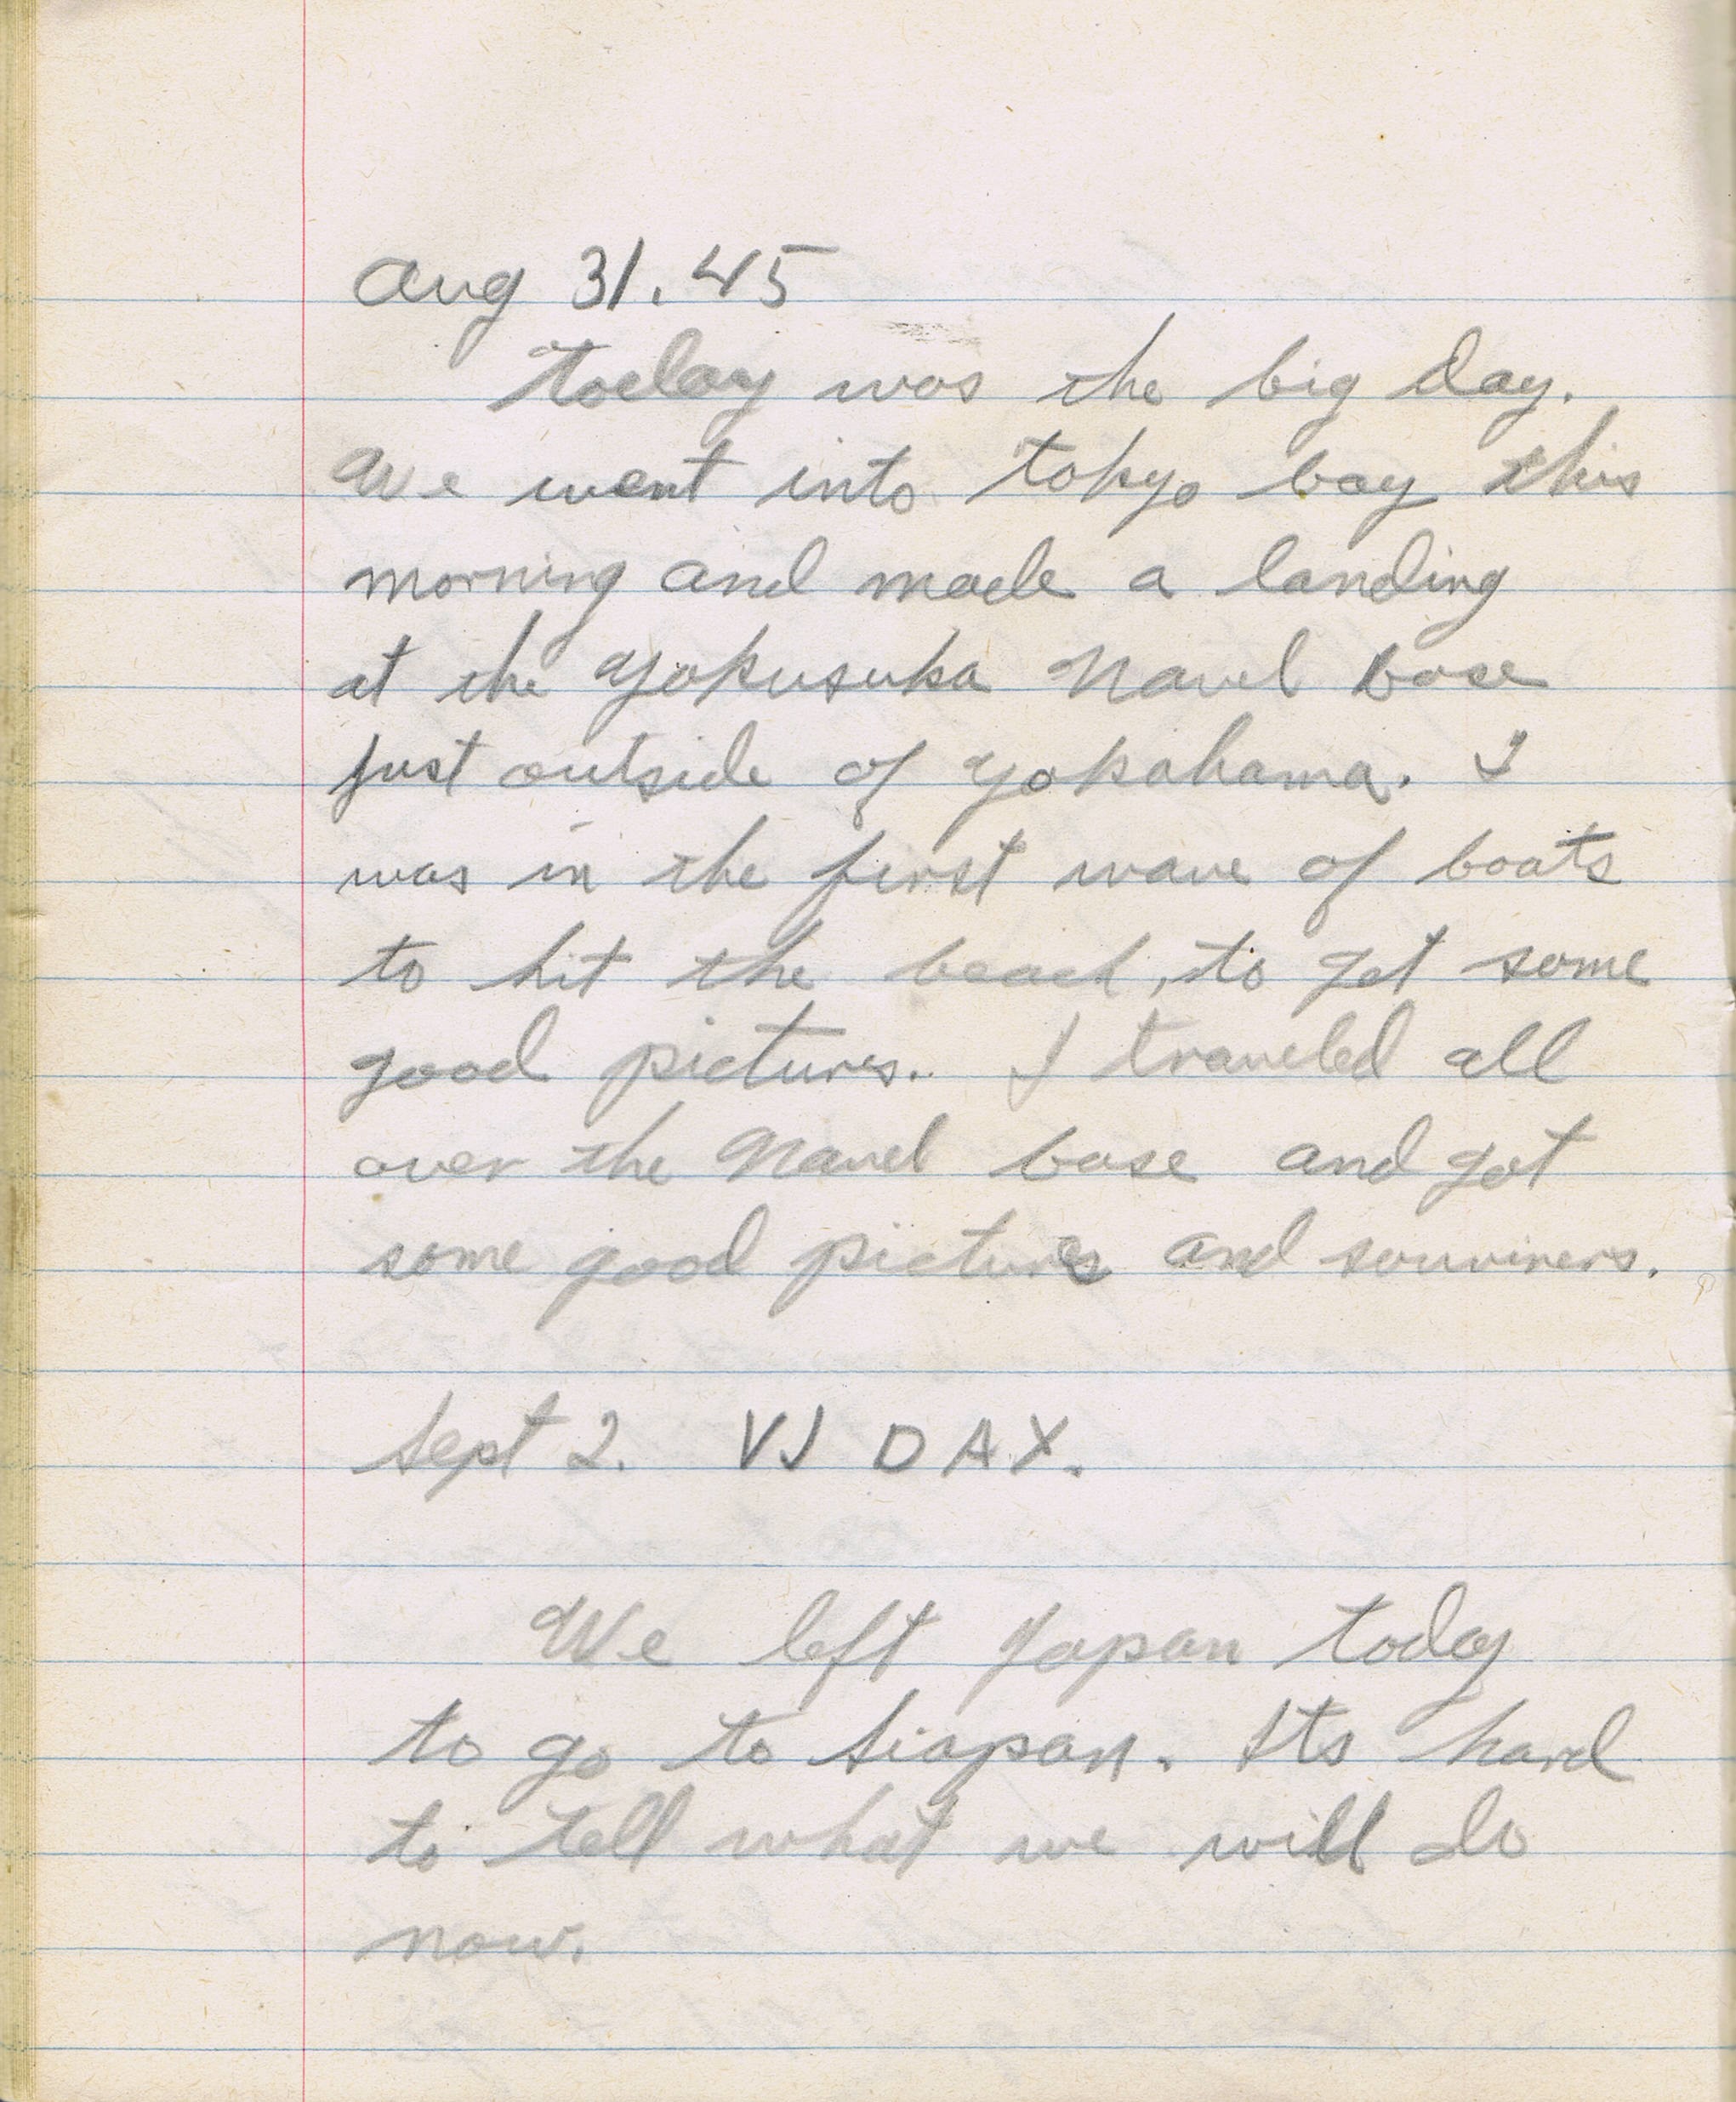 Aug 31. 45
Today was the big day.
We went into tokyo bay this
morning and made a landing
at the Yokusuka Navel Base
just outside of Yokahama. I
was in the first wave of boats
to hit the beach, to get some
good pictures. I traveled all
over the Navel base and got
some good pictures and souviners.
Sept 2. VJ DAY.
We left Japan today
to go to Siapan. Its hard
to tell what we will do
now.